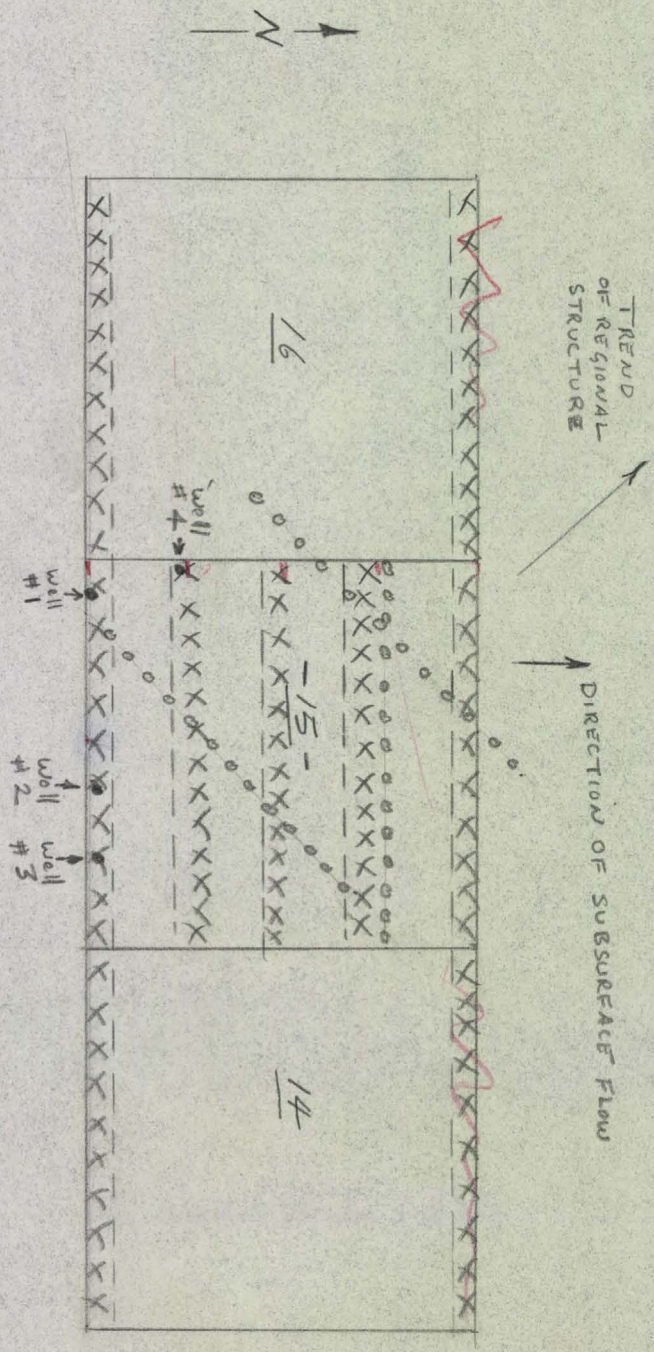 N
TREND
OF REGIONAL
STRUCTURE
DIRECTION OF SUBSURFACE FLOW
16
-15-
14
Well
#4
Well
#1
Well
#2
Well
#3